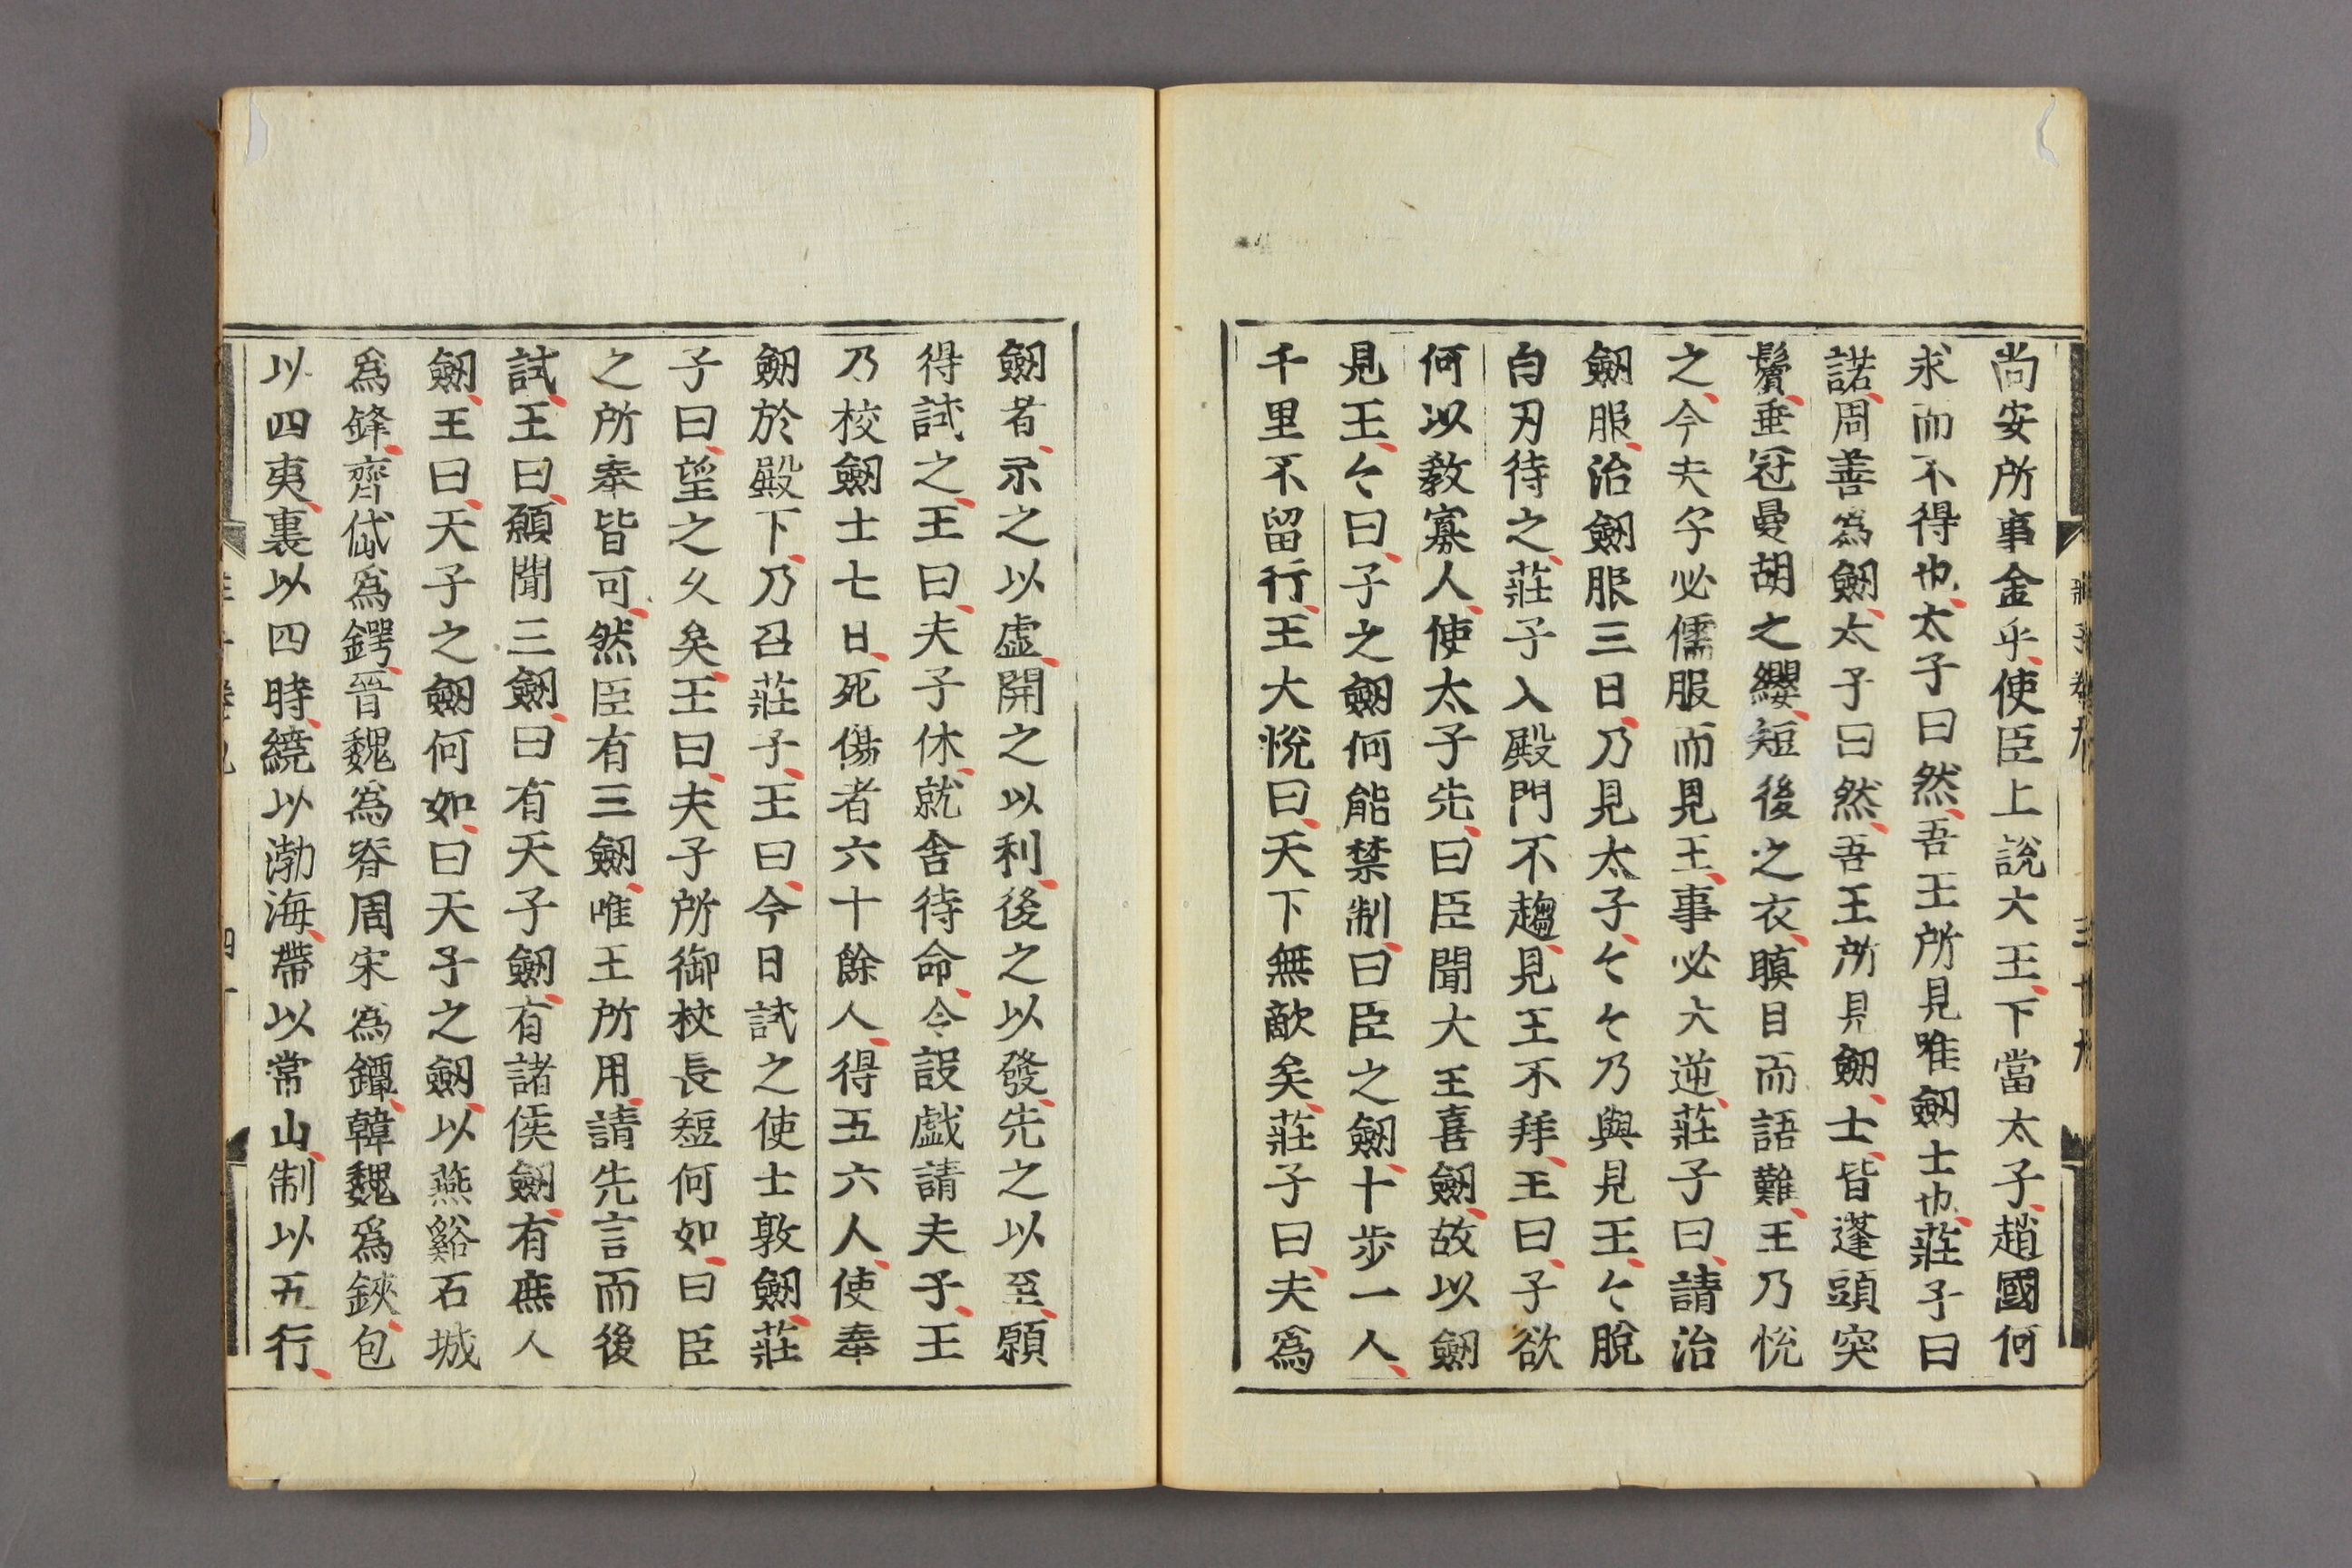 尚安所事金乎使臣上說大王下當太子趙國何
求而不得也太子曰然吾王所見唯劒士也莊子曰
諾周善爲劒太子曰然吾王所見劒士皆蓬頭突
鬢垂冠曼胡之纓短後之衣瞋目而語難王乃悅
之今夫子必儒服而見王事必大逆莊子曰請治
劒服治劒服三日乃見太子々々乃與見王々脫
白刃待之莊子入殿門不趨見王不拜王曰子欲
何以教寡人使太子先曰臣聞大王喜劒故以劒
見王々曰子之劒何能禁制曰臣之劒十步一人
千里不留行王大悅曰天下無敵矣莊子曰夫爲
劒者示之以虛開之以利後之以發先之以至願
得試之王曰夫子休就舍待命令設戲請夫子王
乃校劒士七日死傷者六十餘人得五六人使奉
劒於殿下乃召莊子王曰今日試之使士敦劒莊
子曰望之久矣王曰夫子所御杖長短何如曰臣
之所奉皆可然臣有三劒唯王所用請先言而後
試王曰願聞三劒曰有天子劒有諸侯劒有庶人
劒王曰天子之劒何如曰天子之劒以燕谿石城
爲鋒齊岱爲鍔晉魏爲脊周宋爲鐔韓魏爲鋏包
以四夷裹以四時繞以渤海帶以常山制以五行